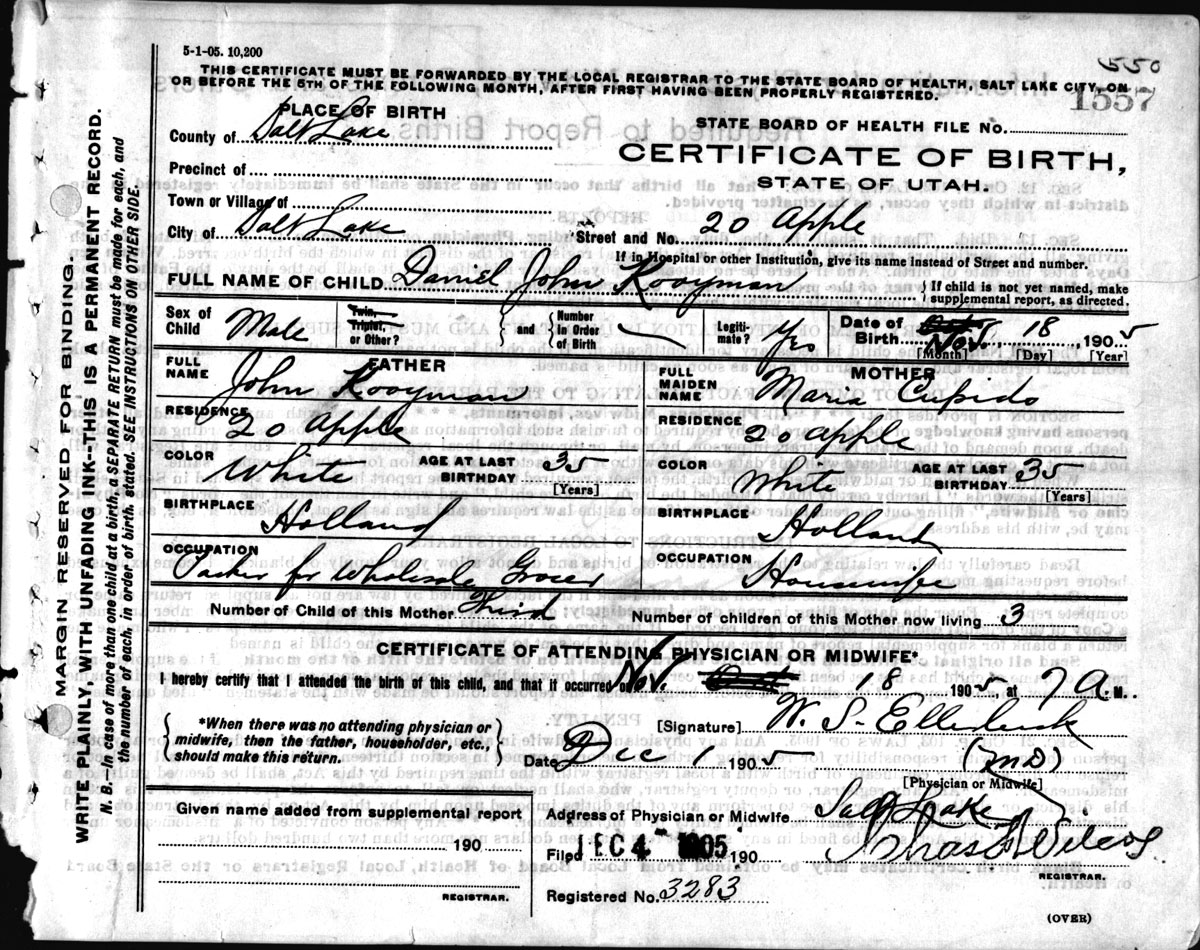 5-1-05. 10,200
550
THIS CERTIFICATE MUST BE FORWARDED BY THE LOCAL REGISTRAR TO THE STATE BOARD OF HEALTH, SALT LAKE CITY, ON
OR BEFORE THE 5TH OF THE FOLLOWING MONTH, AFTER FIRST HAVING BEEN PROPERLY REGISTERED.
1557
PLACE OF BIRTH
County of Salt Lake
STATE BOARD OF HEALTH FILE NO.
CERTIFICATE OF BIRTH,
STATE OF UTAH.
Precinct of
Town or Village of
City of Salt Lake
Street and No. 20 Apple
If in Hospital or other Institution, give its name instead of Street and number.
FULL NAME OF CHILD Daniel John Kooyman
If child is not yet named, make
supplemental report, as directed.
Sex of Child Male
Twin, Triplet, or Other?
and
Number in Order of Birth
Legiti-mate? Yes
Date of Birth Oct. Nov. 18 1905
[Month] [Day] [Year]
FATHER
FULL NAME John Kooyman
MOTHER
FULL MAIDEN NAME Maria Cupido
RESIDENCE 20 Apple
RESIDENCE 20 Apple
COLOR White
AGE AT LAST BIRTHDAY 35
[Years]
COLOR White
AGE AT LAST BIRTHDAY 35
[Years]
BIRTHPLACE Holland
BIRTHPLACE Holland
OCCUPATION Packer for Wholesale Grocer
OCCUPATION Housewife
Number of Child of this Mother Third
Number of children of this Mother now living 3
CERTIFICATE OF ATTENDING PHYSICIAN OR MIDWIFE*
I hereby certify that I attended the birth of this child, and that it occurred on Nov. Oct. 18 1905, at 7 A. M.
*When there was no attending physician or
midwife, then the father, householder, etc.,
should make this return.
[Signature] W. S. Ellerbeck
Date Dec 1 1905
(MD)
[Physician or Midwife]
Given name added from supplemental report
190
REGISTRAR.
Address of Physician or Midwife Salt Lake
Filed DEC 4 1905 190
REGISTRAR.
Registered No. 3283
(OVER)
MARGIN RESERVED FOR BINDING.
WRITE PLAINLY, WITH UNFADING INK--THIS IS A PERMANENT RECORD.
N. B.--In case of more than one child at a birth, a SEPARATE RETURN must be made for each, and
the number of each, in order of birth, stated. SEE INSTRUCTIONS ON OTHER SIDE.